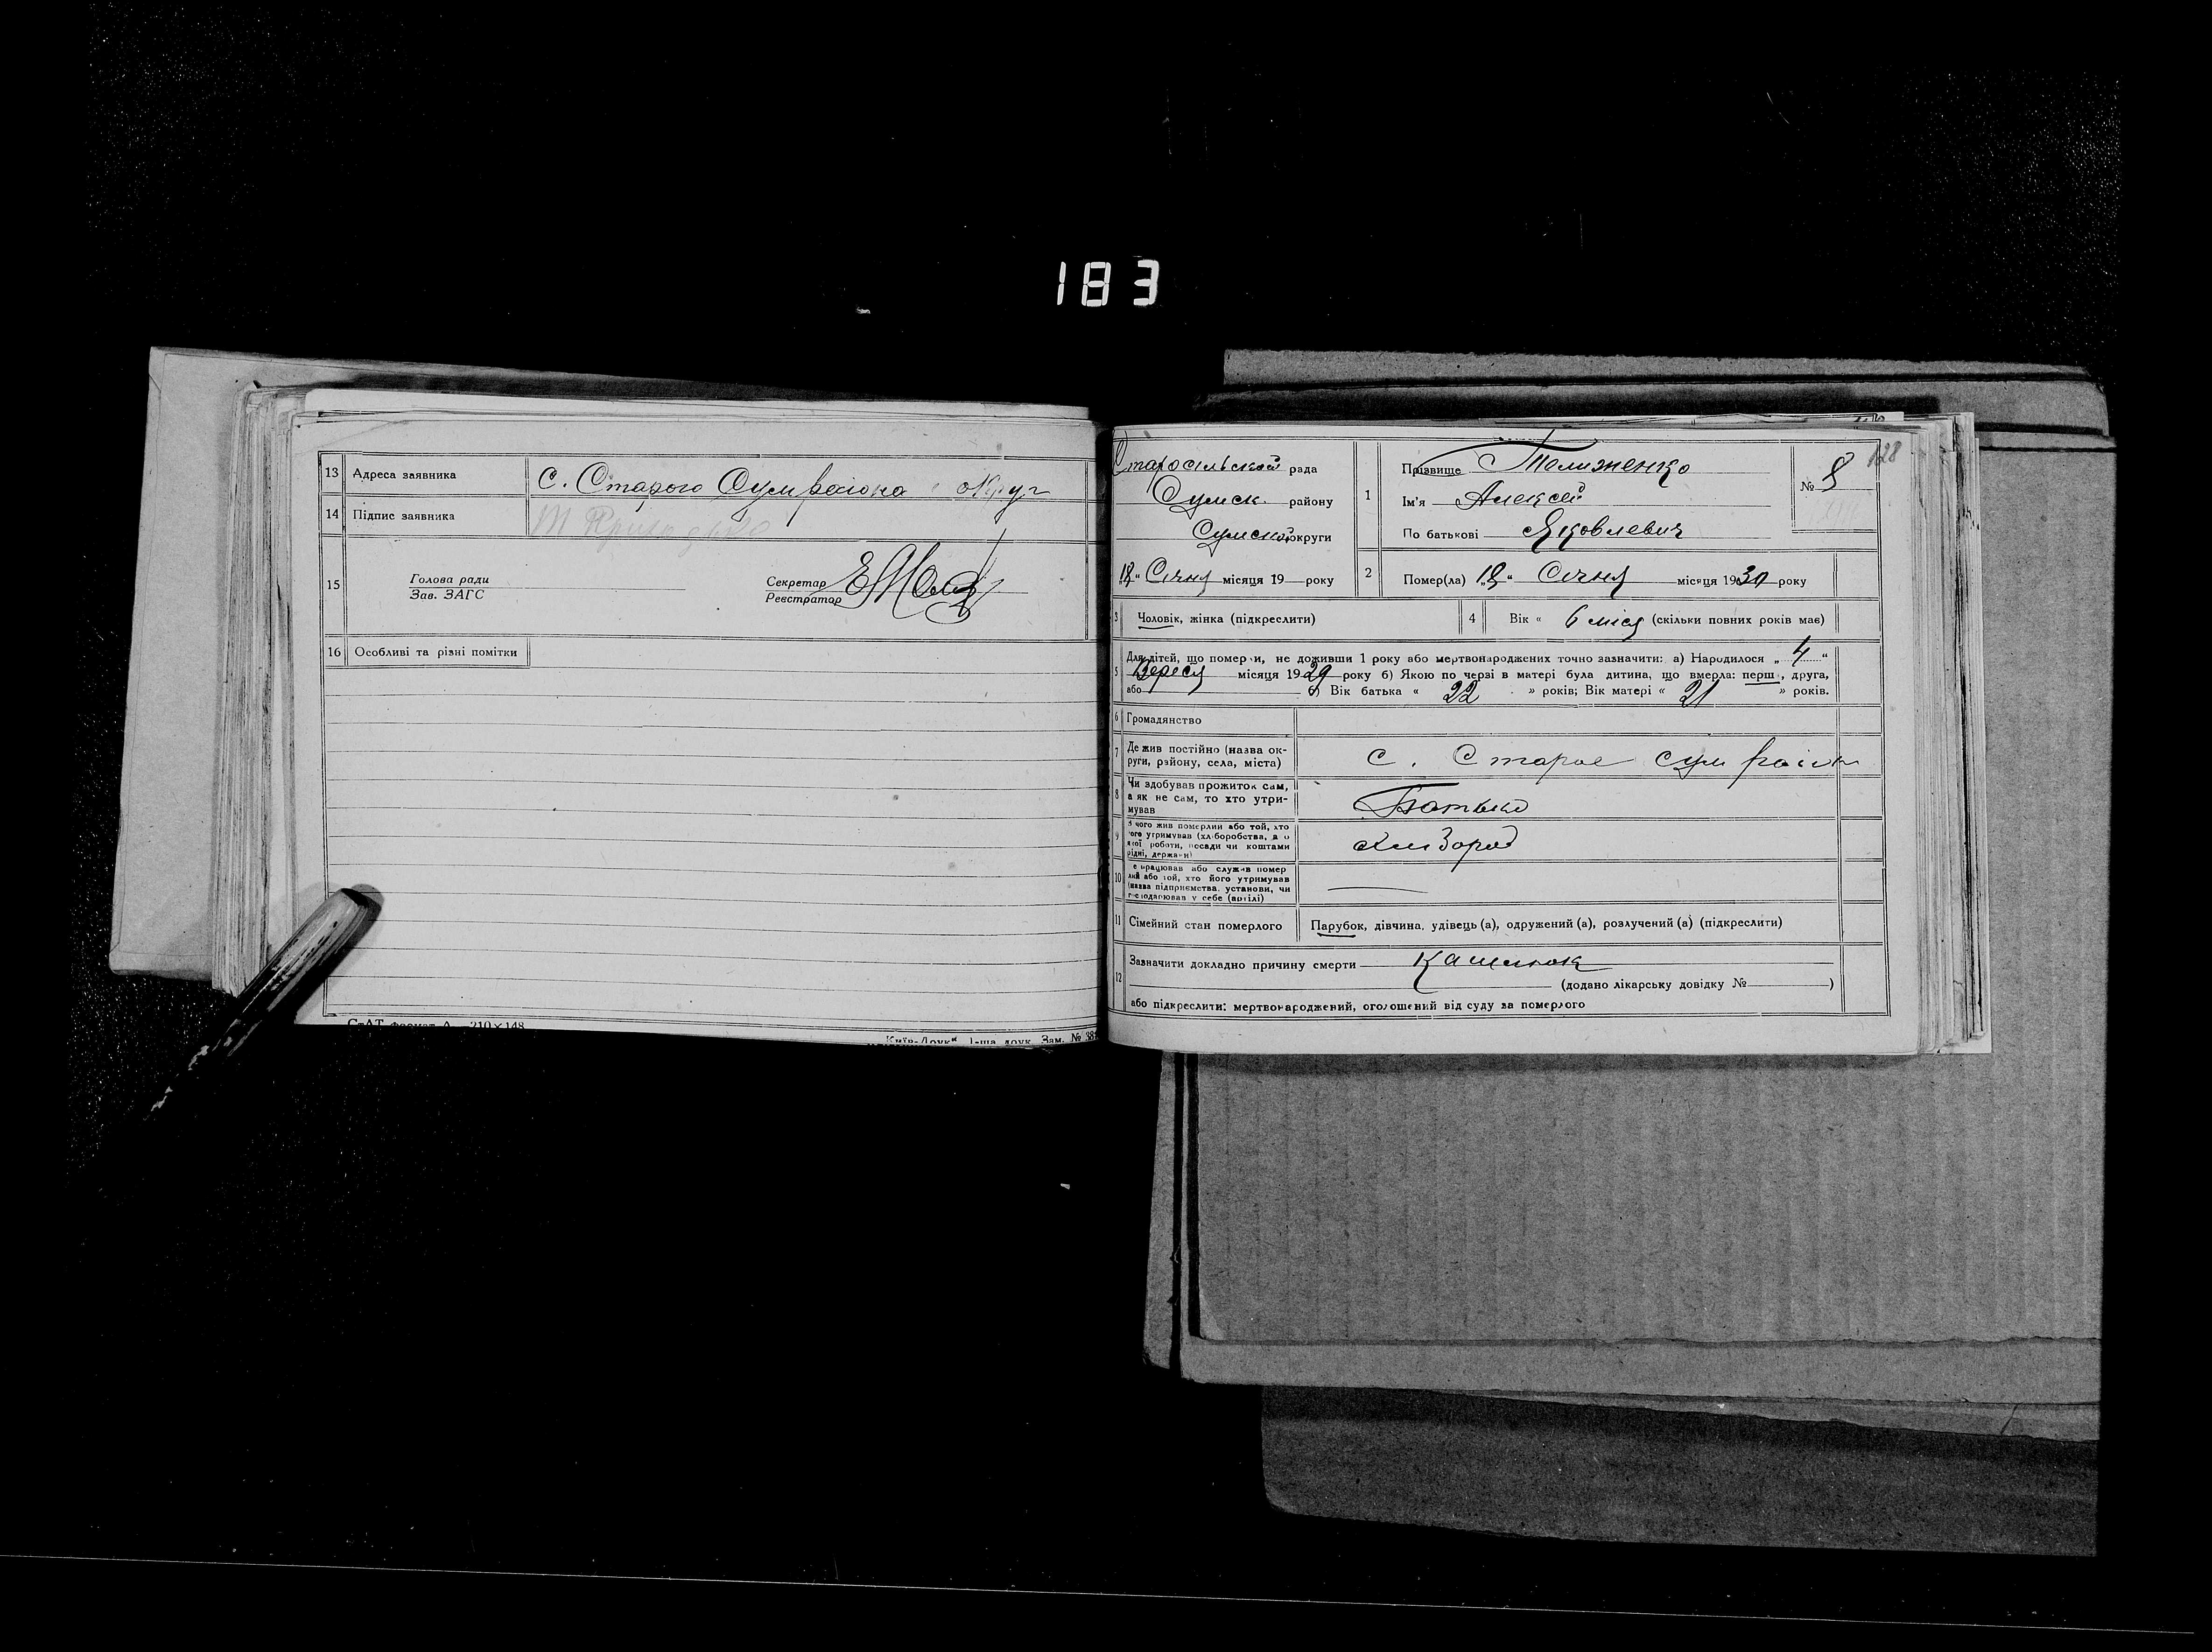 183
13 Адреса заявника С. Старого Сумрайона округ
14 Підпис заявника
15 Голова ради
Зав. ЗАГС
Секретар
Реєстратор
16 Особливі та різні помітки
СтАТ формат А 210×148
Київ-Друк" 1-ша друк. Зам. №
128
Старосільской рада
Сумск. району
Сумской округи
"18" Січня місяця 19 року
1 Прізвище Телиженко
Ім'я Алексей
По батькові Яковлевич
№ 8
2 Помер(ла) "18" Січня місяця 1930 року
3 Чоловік, жінка (підкреслити)
4 Вік « 6 міся (скільки повних років має)
5 Для дітей, що померли, не доживши 1 року або мертвонароджених точно зазначити: а) Народилося „ 4 “
Вереся місяця 1929 року б) Якою по черзі в матері була дитина, що вмерла: перша, друга,
або в) Вік батька « 22 » років; Вік матері « 21 » років.
6 Громадянство
7 Де жив постійно (назва округи, району, села, міста) с. Старое сум район
8 Чи здобував прожиток сам, а як не сам, то хто утримував Батько
9 З чого жив померлий або той, хто його утримував (хліборобства, якої роботи, посади чи коштами рідні, держави) хлибороб
10 Де працював або служив померлий або той, хто його утримував (назва підприємства, установи, чи господарював у себе (артілі)
11 Сімейний стан померлого Парубок, дівчина, удівець (а), одружений (а), розлучений (а) (підкреслити)
12 Зазначити докладно причину смерти Кашлюк
(додано лікарську довідку № )
або підкреслити: мертвонароджений, оголошений від суду за померлого